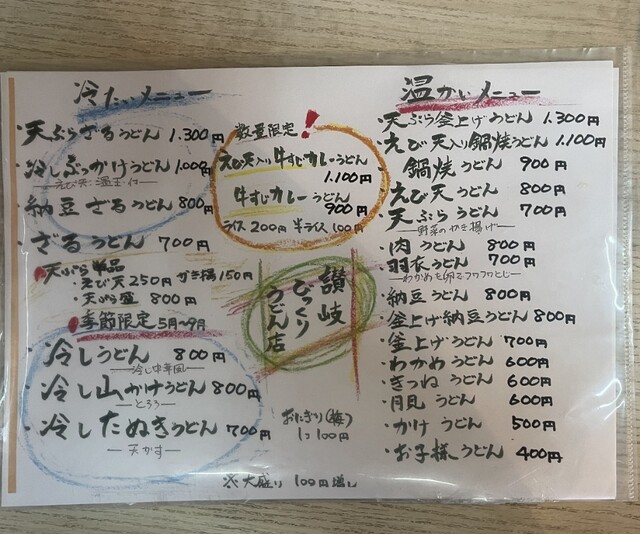 冷たいメニュー
・天ぷらざるうどん 1.300円
・冷しぶっかけうどん 1.000円
・納豆ざるうどん 800円
・ざるうどん 700円
天ぷら単品
・えび天 250円 かき揚 150円
・天ぷら盛 800円
季節限定 5月〜9月
・冷しうどん 800円
・冷し山かけうどん 800円
―とろろ―
・冷したぬきうどん 700円
―天かす―
数量限定!
えび天入り牛すじカレーうどん
1.100円
牛すじカレーうどん
900円
ライス 200円 半ライス 100円
讃岐
びっくり
うどん店
おにぎり(梅)
1つ 100円
※大盛り 100円増し
温かいメニュー
・天ぷら釜上げうどん 1.300円
・えび天入り鍋焼うどん 1.100円
鍋焼うどん 900円
・えび天うどん 800円
・天ぷらうどん 700円
―野菜のかき揚げ―
・肉うどん 800円
・羽衣うどん 700円
―わかめと卵でフワフワとじ―
・納豆うどん 800円
・釜上げ納豆うどん 800円
・釜上げうどん 700円
・わかめうどん 600円
・きつねうどん 600円
・月見うどん 600円
・かけうどん 500円
・お子様うどん 400円